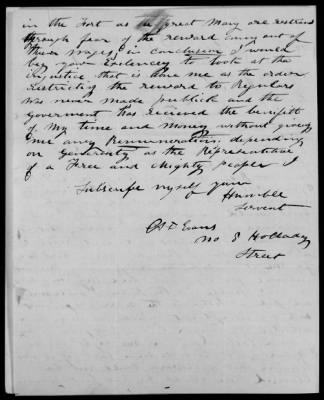 in the Fort as a great Many are restrained
through fear of the reward being out of
their wages, in conclusion I would
beg your Exelency to look at the
injustice that is done me as the order
restricting the reward to Regulars
was never made publick and the
Goverment has received the benifit
of my time and Money without giveing
me any Remuneration, depending
on Generosity as the Representative
of a Free and Mighty people I
Subscribe myself your
Humble
Servent
Evans
No 8 Holladay
Street